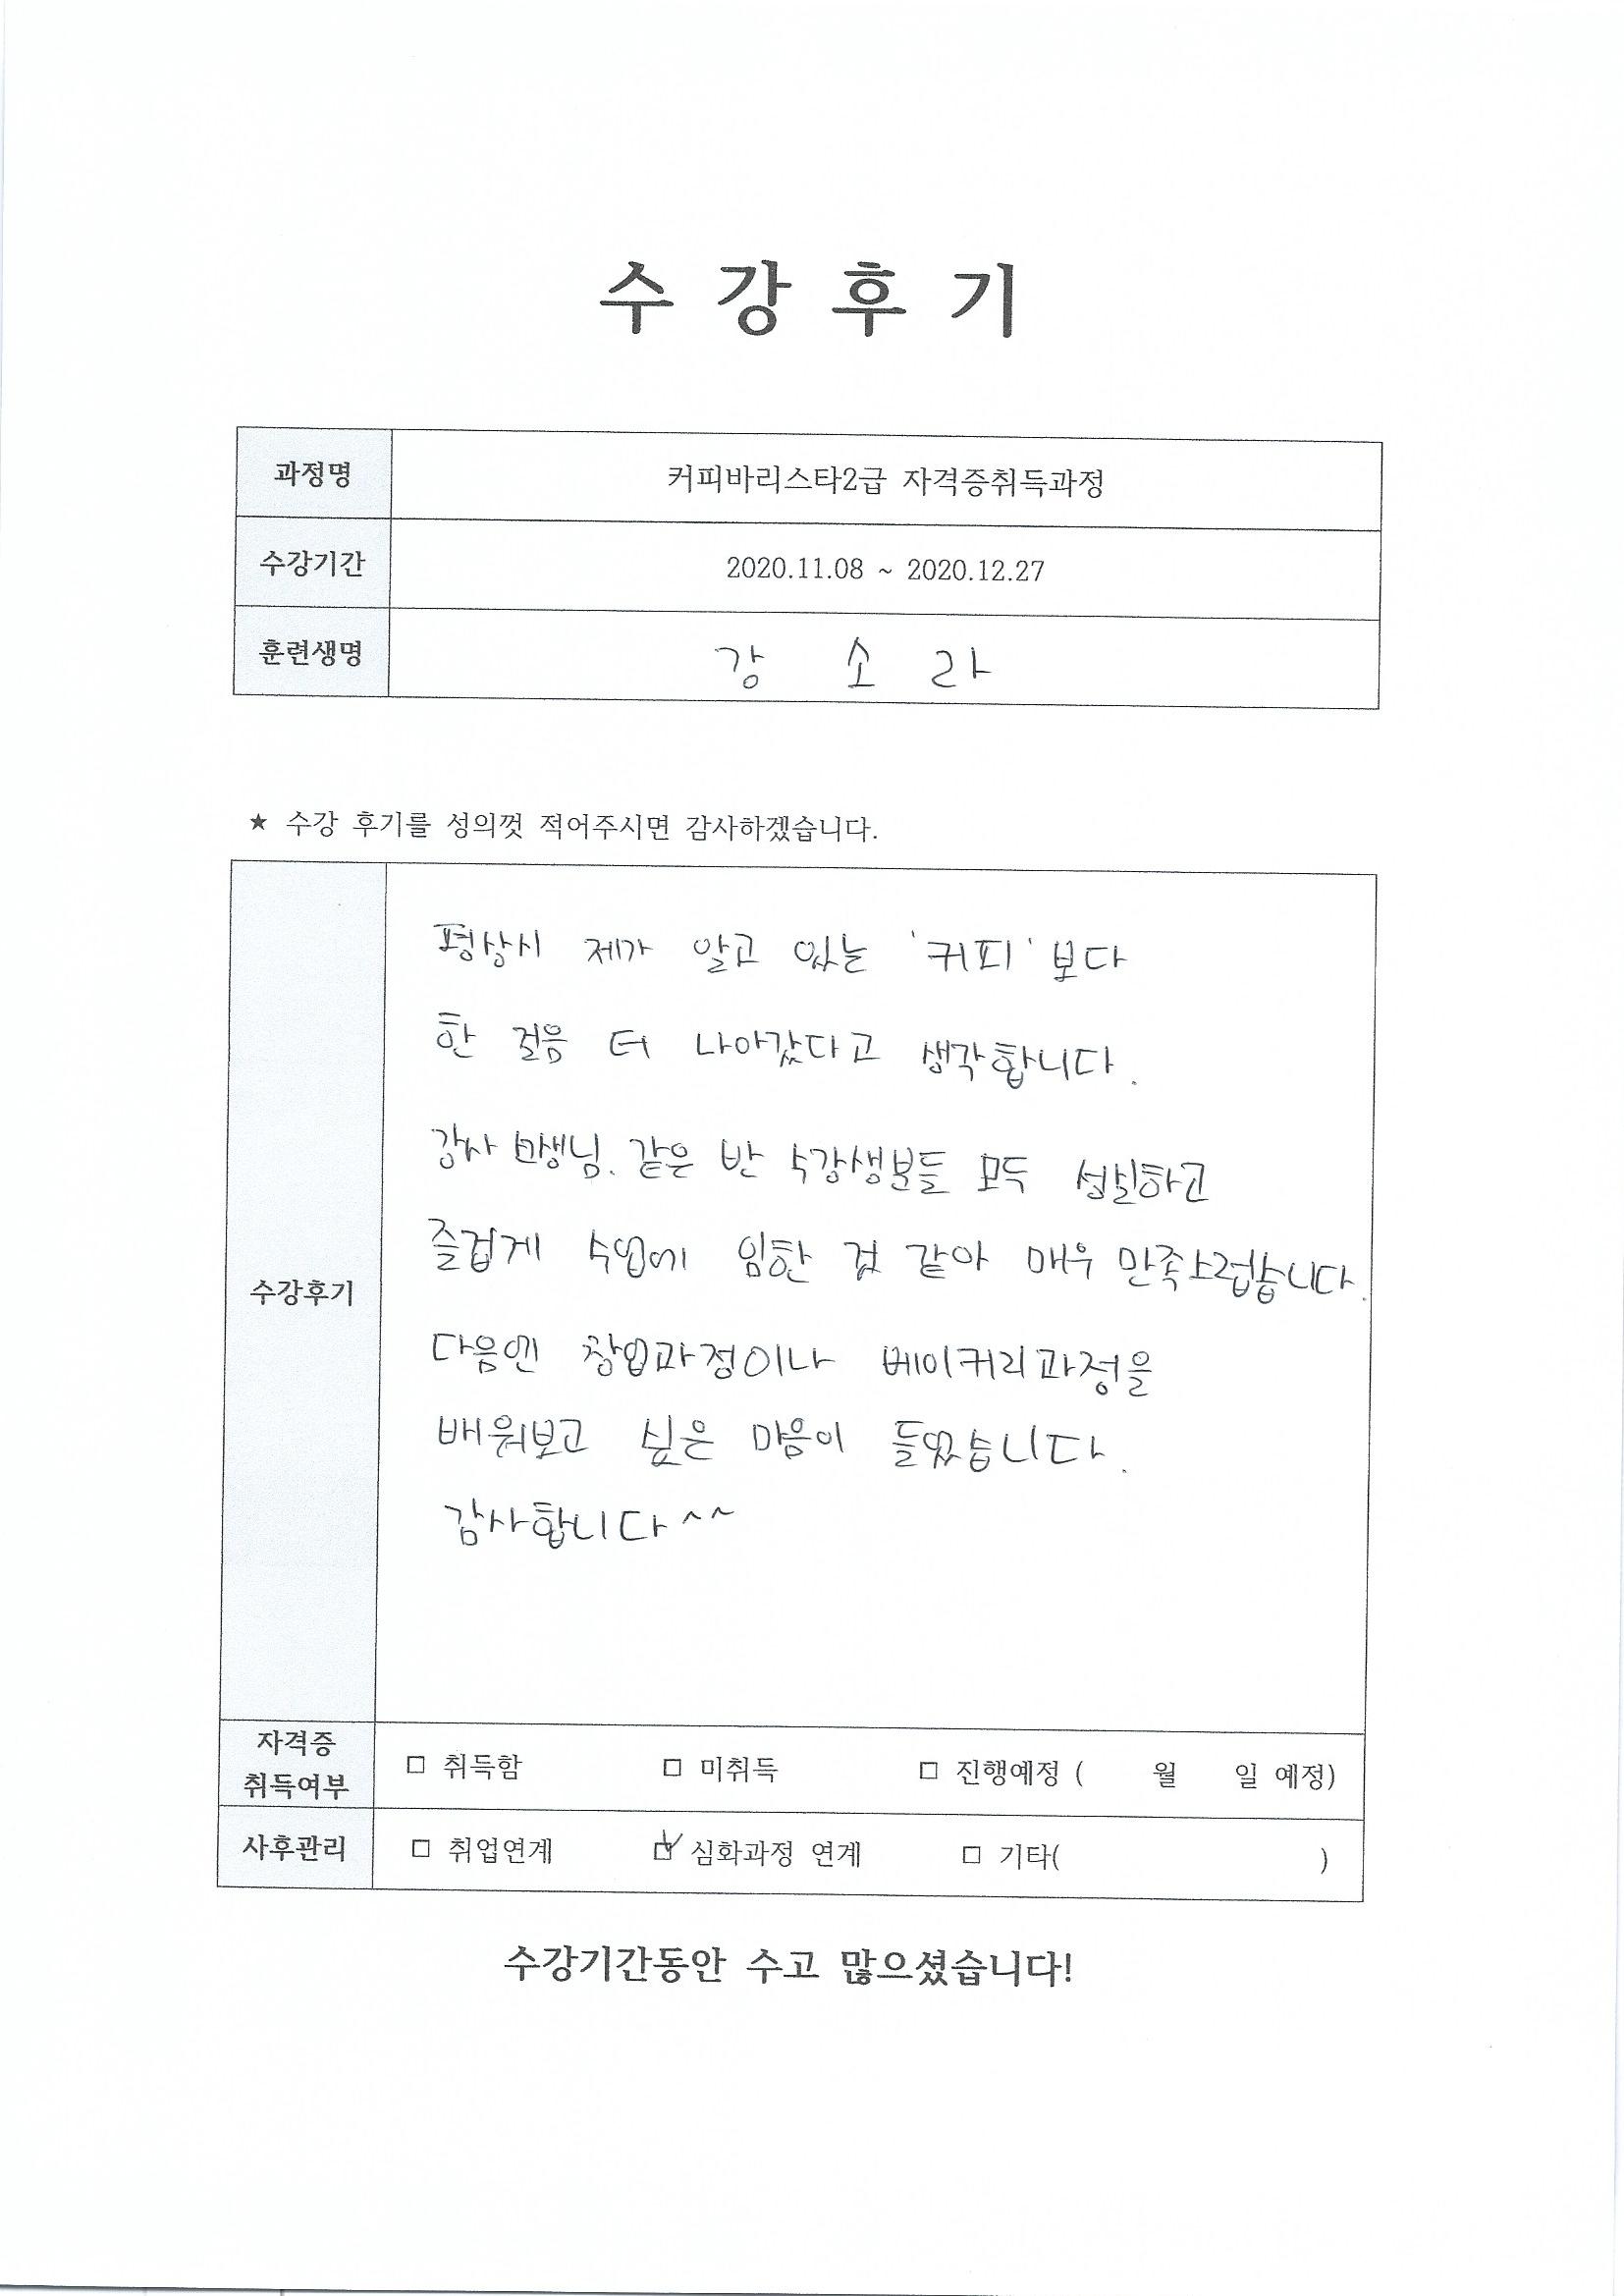 수 강 후 기
과정명 커피바리스타2급 자격증취득과정
수강기간 2020.11.08 ~ 2020.12.27
훈련생명 강 소 라
★ 수강 후기를 성의껏 적어주시면 감사하겠습니다.
수강후기
평상시 제가 알고 있는 '커피'보다
한 걸음 더 나아갔다고 생각합니다.
강사 선생님. 같은 반 수강생분들 모두 성실하고
즐겁게 수업에 임한 것 같아 매우 만족스럽습니다.
다음엔 창업과정이나 베이커리과정을
배워보고 싶은 마음이 들었습니다.
감사합니다^^
자격증
취득여부 □ 취득함 □ 미취득 □ 진행예정 ( 월 일 예정)
사후관리 □ 취업연계 ☑ 심화과정 연계 □ 기타( )
수강기간동안 수고 많으셨습니다!